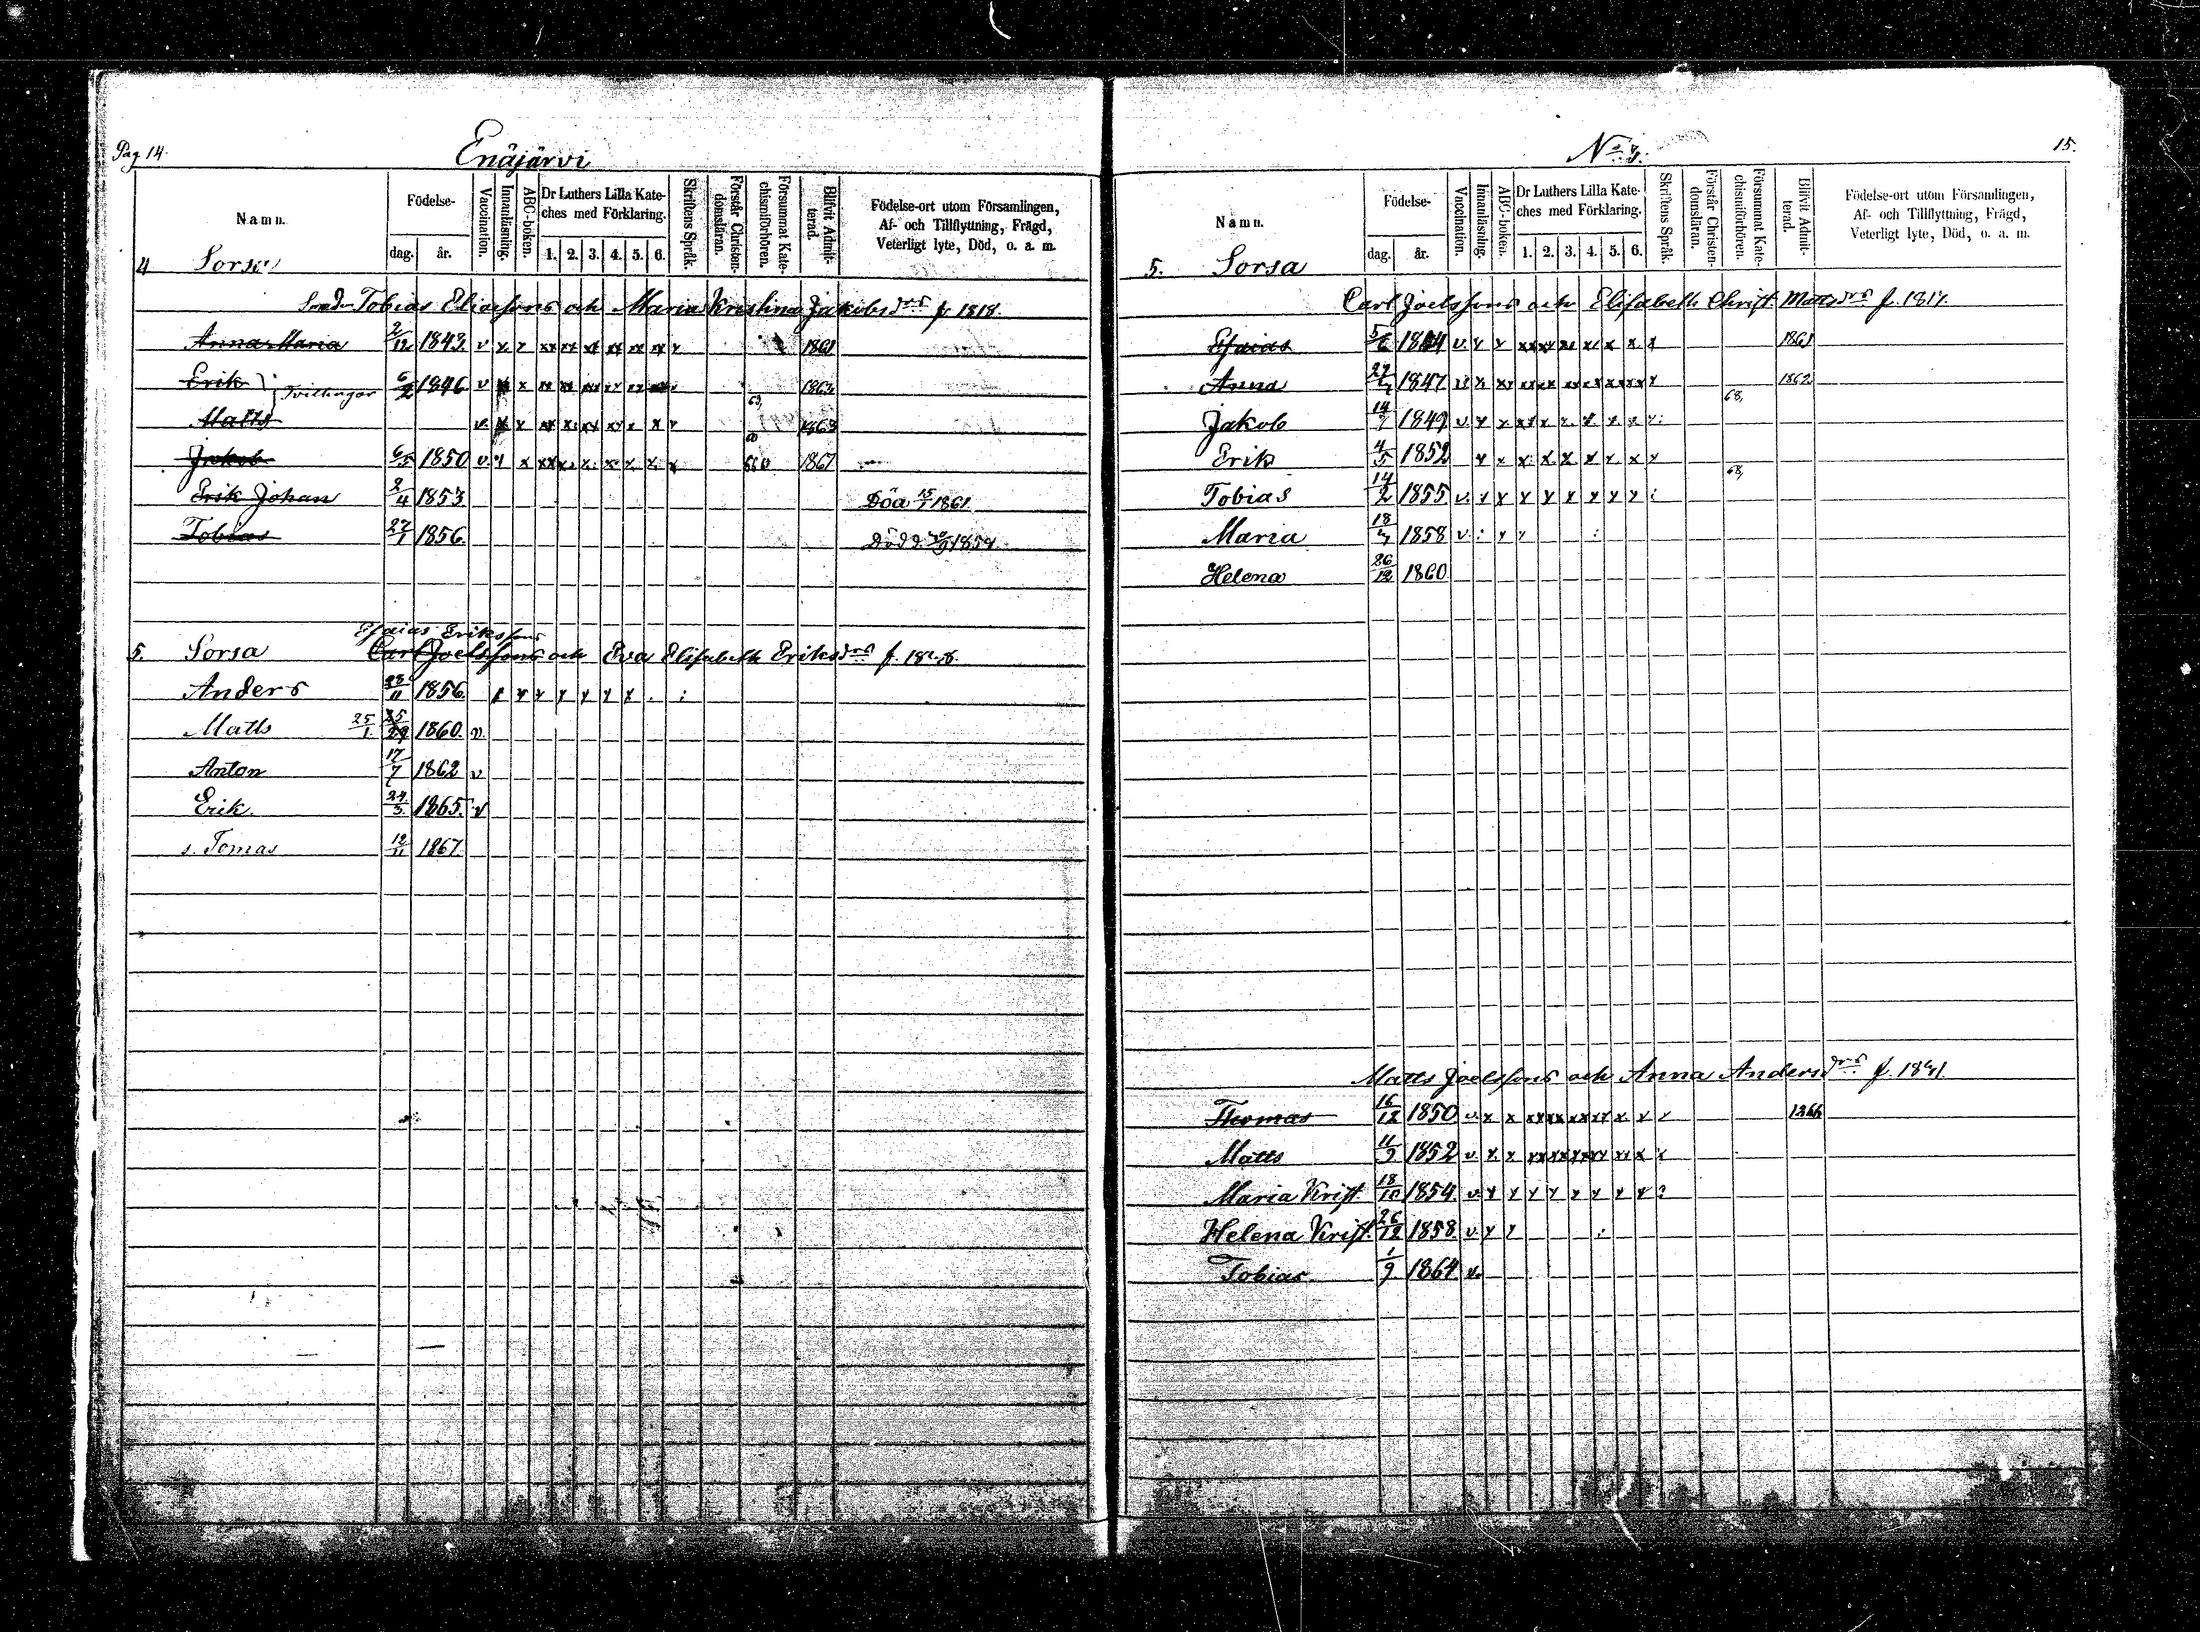 Pag 14.
Enäjärvi
Namn.
Födelse-
dag. år.
Vaccination.
Innanläsning.
ABC-boken.
Dr Luthers Lilla Kate-
ches med Förklaring.
1. 2. 3. 4. 5. 6.
Skriftens Språk.
Förstår Christen-
domsläran.
Försummat Kate-
chismiförhören.
Blifvit Admit-
terad.
Födelse-ort utom Församlingen,
Af- och Tillflyttning, Frägd,
Veterligt lyte, Död, o. a. m.
4 Sorsa
Tobias Eliassons och Maria Kristina Jakobsdrs f. 1818.
Anna Maria 2/12 1843 v x x xx xx xx xx xx xx x 1861
Erik Tvillingar 6/2 1846 v x xx xx xx xx xx x 63, 1863
Matts v. x xx x xx xx x x x 60 1863
Jakob 6/5 1850 v. x x xx x x x x x x 1867
Erik Johan 2/4 1853 Död 15/1 1861
Tobias 27/1 1856 Död d.
5. Sorsa Esaias Erikssons
Carl Joelssons och Eva Elisabeth Eriksdrs f.
Anders 28/11 1856 x x x x x x x
Matts 25/1 1860. v.
Anton 17/7 1862 v
Erik. 24/3 1865. v
s. Tomas 12/11 1867
No
15.
Namn.
Födelse-
dag. år.
Vaccination.
Innanläsning.
ABC-boken.
Dr Luthers Lilla Kate-
ches med Förklaring.
1. 2. 3. 4. 5. 6.
Skriftens Språk.
Förstår Christen-
domsläran.
Försummat Kate-
chismiförhören.
Blifvit Admit-
terad.
Födelse-ort utom Församlingen,
Af- och Tillflyttning, Frägd,
Veterligt lyte, Död, o. a. m.
5. Sorsa
Carl Joelssons och Elisabeth Christ. Mattsdrs f. 1817.
Esaias 5/6 1844 v. x x xx xx xx xx x x x 1861
Anna 1847 xx xx xx xx xx xx xx x 68, 1862
Jakob 1849 v. x x xx x x x x x
Erik 4/5 1852 x x x x x x x x x 68,
Tobias 14/2 1855 v. x x x x x x x x
Maria 1858 v. x x
Helena 26/12 1860
Matts Joelssons och Anna Andersdrs f.
Thomas 16/12 1850 v. x x xx xx xx xx x x x 1866
Matts 11/9 1852 v. x x xx xx xx xx xx x x
Maria Krist. 18/10 1854. v. x x x x x x x x
Helena Krist. 26/12 1858 v. x x
Tobias 1/9 1864 v.